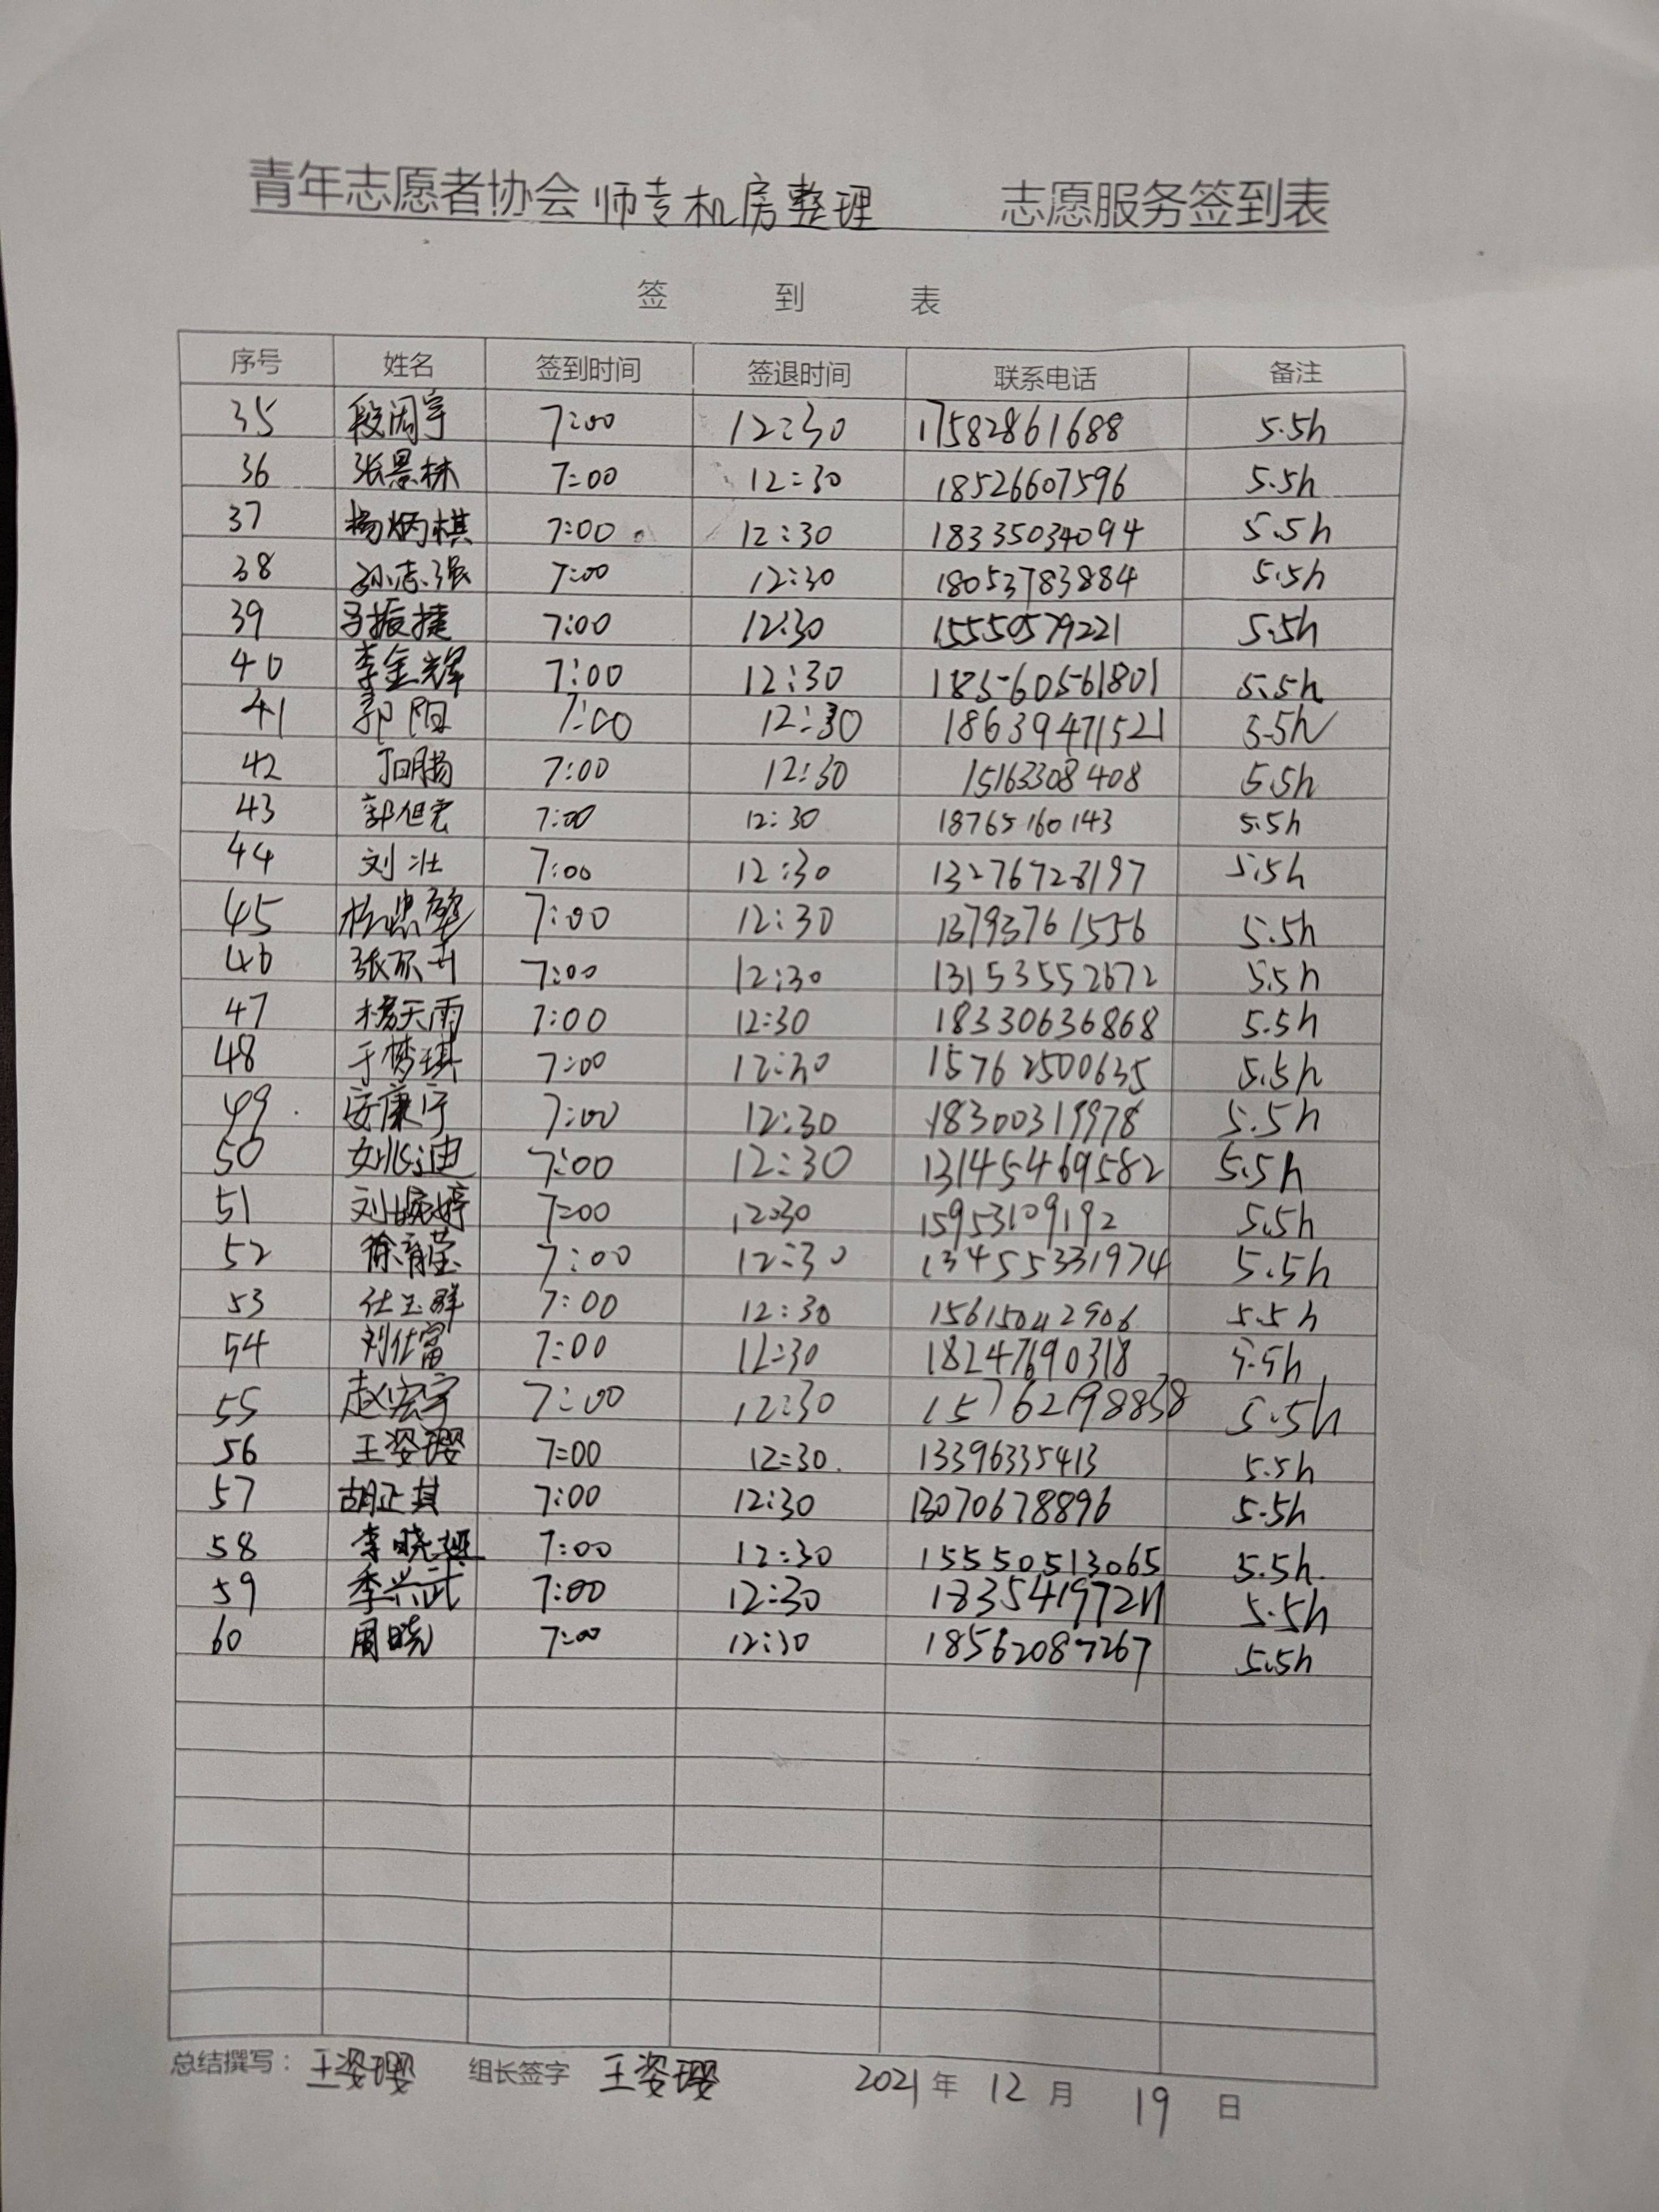 青年志愿者协会 师专机房整理 志愿服务签到表
签 到 表
序号 姓名 签到时间 签退时间 联系电话 备注
35 段闰宇 7:00 12:30 17582861688 5.5h
36 张景林 7:00 12:30 18526607596 5.5h
37 杨炳棋 7:00 12:30 18335034094 5.5h
38 孙志强 7:00 12:30 18053783884 5.5h
39 振捷 7:00 12:30 15550579221 5.5h
40 李金辉 7:00 12:30 18560561801 5.5h
41 郭阳 7:00 12:30 18639471521 5.5h
42 7:00 12:30 15163308408 5.5h
43 郭旭宏 7:00 12:30 18765160143 5.5h
44 刘壮 7:00 12:30 13276728197 5.5h
45 7:00 12:30 13793761556 5.5h
46 张 7:00 12:30 13153552672 5.5h
47 杨天雨 7:00 12:30 18330636868 5.5h
48 于梦琪 7:00 12:30 15762500635 5.5h
49 安康宁 7:00 12:30 18300319978 5.5h
50 姚迪 7:00 12:30 13145469582 5.5h
51 刘婷 7:00 12:30 15953109192 5.5h
52 徐育莹 7:00 12:30 13455331974 5.5h
53 任玉群 7:00 12:30 15615042906 5.5h
54 刘仕富 7:00 12:30 18247690318 5.5h
55 赵宏宇 7:00 12:30 15762198838 5.5h
56 王姿璎 7:00 12:30 13396335413 5.5h
57 胡正其 7:00 12:30 13070678896 5.5h
58 李晓 7:00 12:30 15550513065 5.5h
59 季兴武 7:00 12:30 18354197211 5.5h
60 周晓 7:00 12:30 18562087267 5.5h
总结撰写：王姿璎 组长签字 王姿璎 2021年 12月 19日